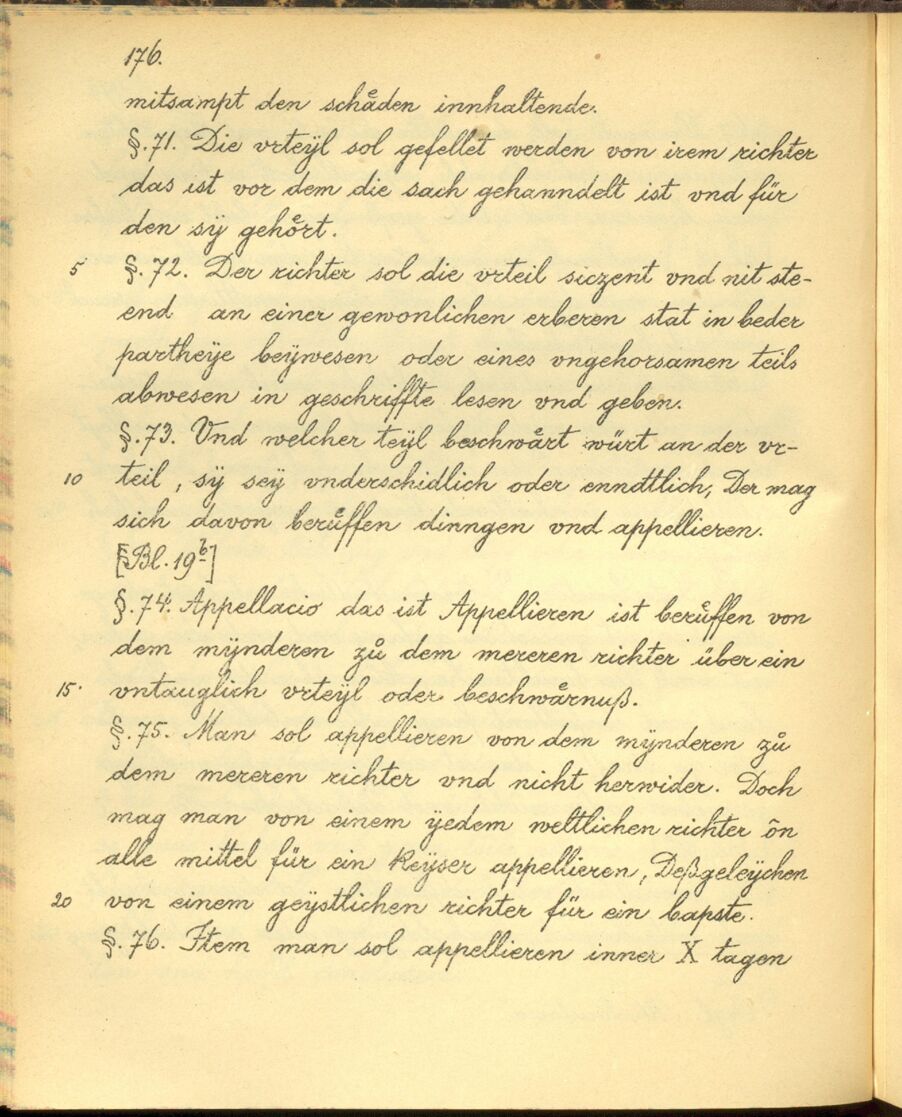 176.
mitsampt den schåden innhaltende.
§. 71. Die vrteÿl sol gefellet werden von irem richter
das ist vor dem die sach gehanndelt ist vnd für
den sÿ gehoͤrt.
5 §. 72. Der richter sol die vrteil siczent vnd nit ste-
end an einer gewonlichen erberen stat in beder
partheÿe beÿwesen oder eines vngehorsamen teils
abwesen in geschriffte lesen vnd geben.
§. 73. Vnd welcher teÿl beschwårt würt an der vr-
10 teil, sÿ seÿ vnderschidlich oder enndtlich, Der mag
sich davon beruͤffen dinngen vnd appellieren.
[Bl. 19ᵇ]
§. 74. Appellacio das ist Appellieren ist beruͤffen von
dem mÿnderen zů dem mereren richter über ein
15 vntauglich vrteÿl oder beschwårnuß.
§. 75. Man sol appellieren von dem mÿnderen zů
dem mereren richter vnd nicht herwider. Doch
mag man von einem ÿedem weltlichen richter õn
alle mittel für ein Keÿser appellieren, Deßgeleÿchen
20 von einem geÿstlichen richter für ein bapste.
§. 76. Item man sol appellieren inner X tagen